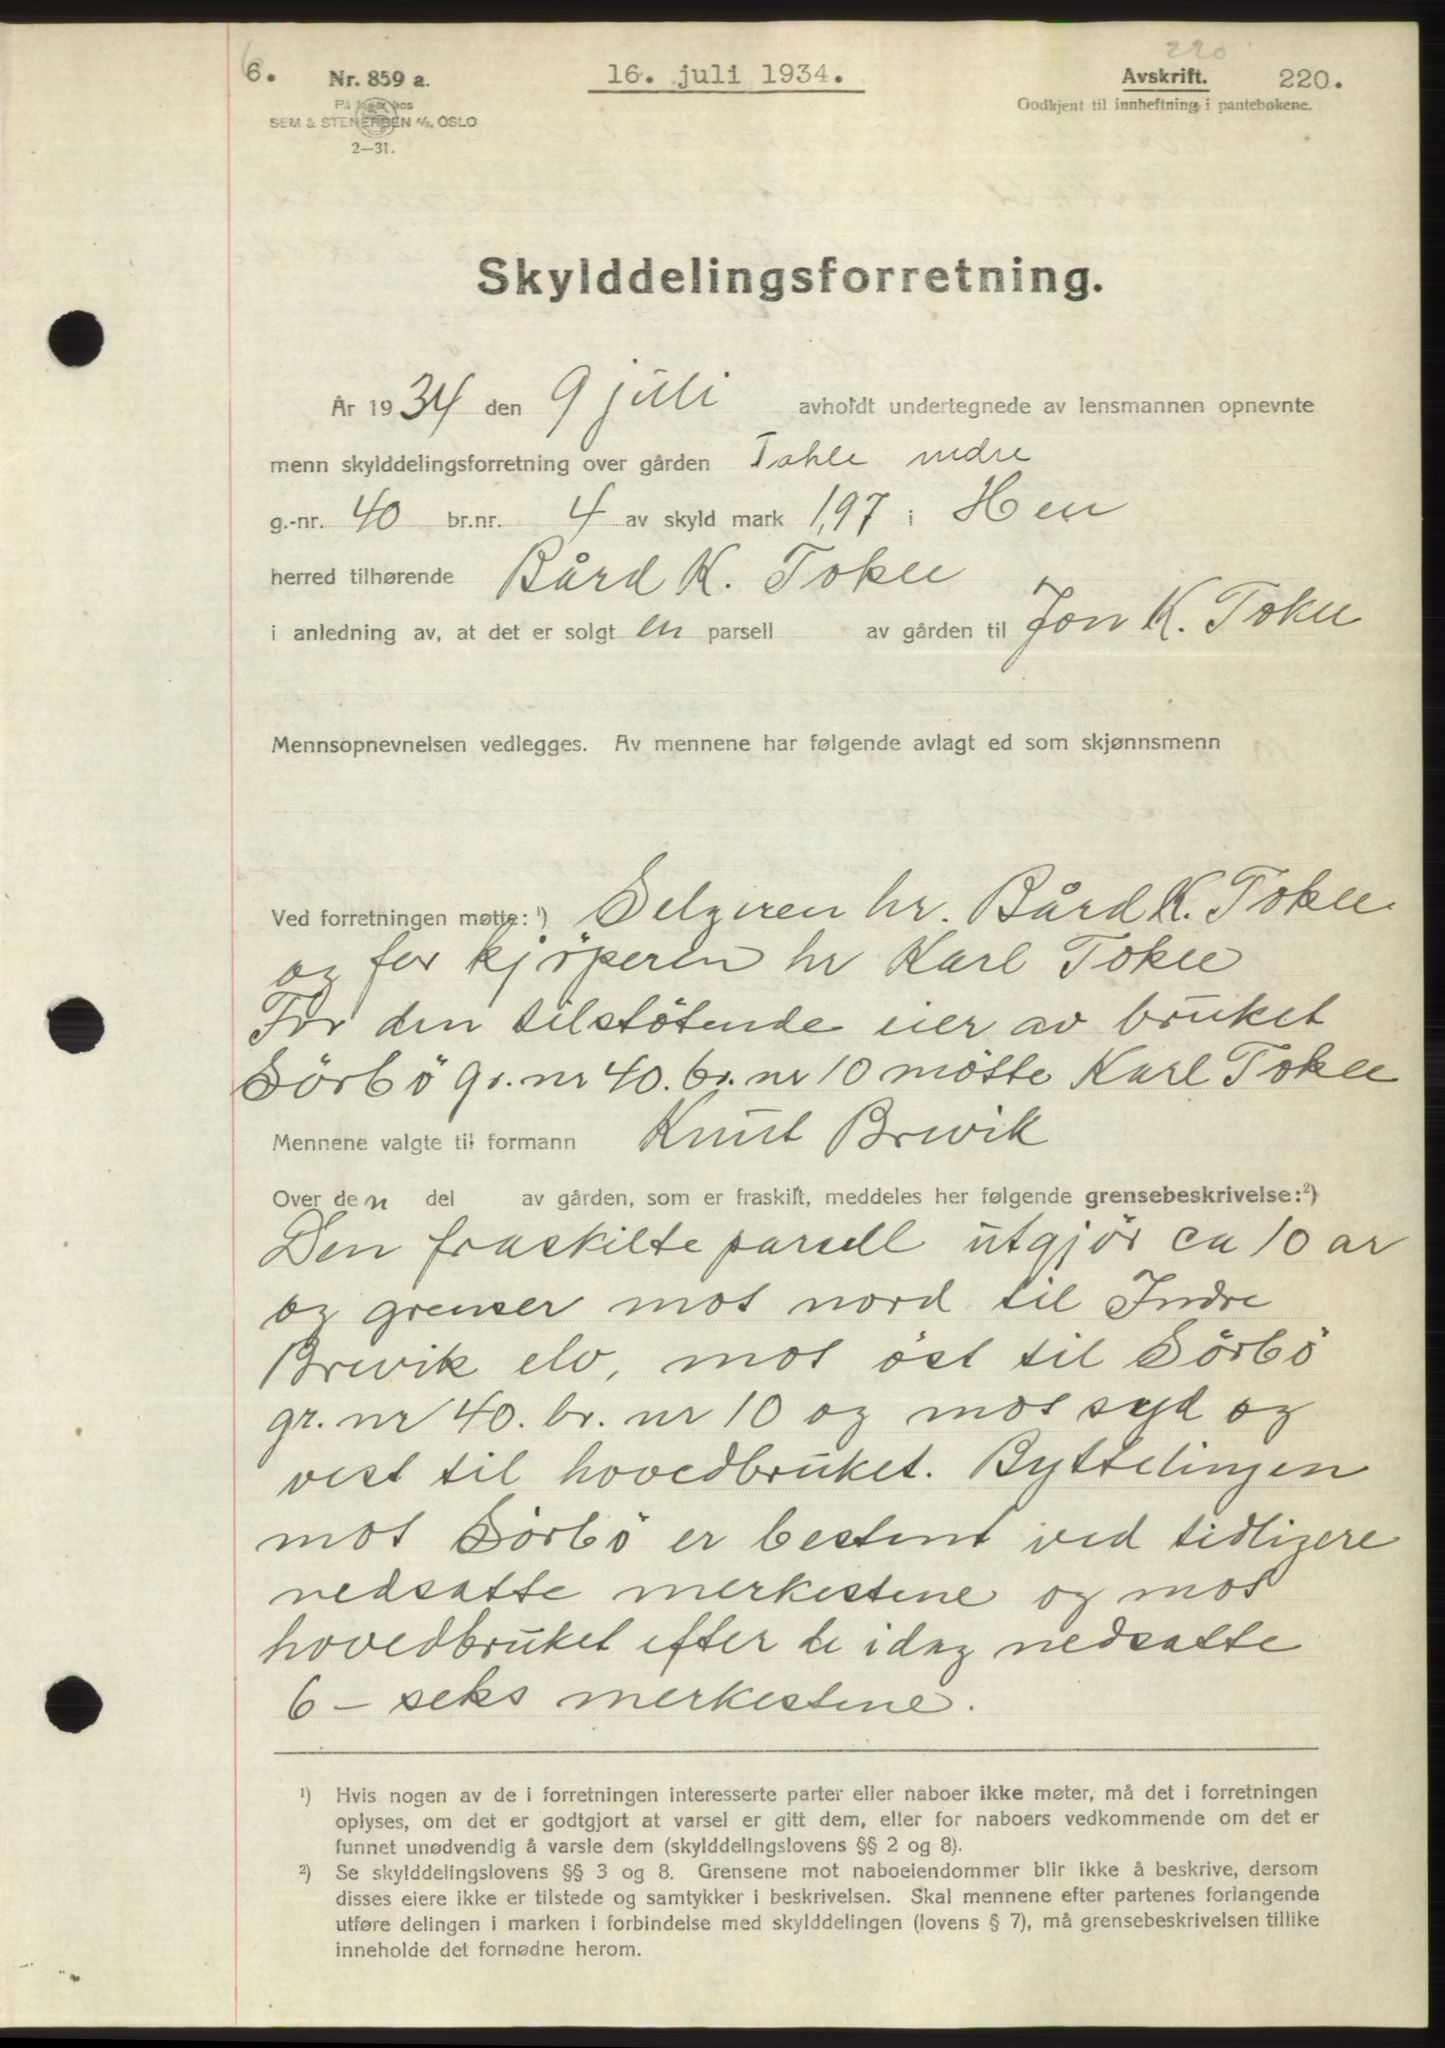 220
6. Nr. 859 a. 16. juli 1934. Avskrift. 220.
På lager hos Godkjent til innheftning i pantebøkene.
SEM & STENERSEN A/S, OSLO
2—31.
Skylddelingsforretning.
År 1934 den 9 juli avholdt undertegnede av lensmannen opnevnte
menn skylddelingsforretning over gården Tokle indre
g.-nr. 40 br.nr. 4 av skyld mark 1,97 i Hen
herred tilhørende Bård K. Tokle
i anledning av, at det er solgt en parsell av gården til Jon K. Tokle
Mennsopnevnelsen vedlegges. Av mennene har følgende avlagt ed som skjønnsmenn
Ved forretningen møtte: ¹) Selgeren hr. Bård K. Tokle.
og for kjöperen hr Karl Tokle
For den tilstötende eier av bruket
Sörbö gr. nr 40. br. nr 10 mötte Karl Tokle
Mennene valgte til formann Knut Brevik
Over den del av gården, som er fraskilt, meddeles her følgende grensebeskrivelse: ²)
Den fraskilte parsell utgjör ca 10 ar
og grenser mot nord til Indre
Brevik elv, mot öst til Sörbö
gr. nr 40. br. nr 10 og mot syd og
vest til hovedbruket. Byttelingen
mot Sörbö er bestemt ved tidligere
nedsatte merkestene og mot
hovedbruket efter de idag nedsatte
6 – seks merkestene.
¹) Hvis nogen av de i forretningen interesserte parter eller naboer ikke møter, må det i forretningen
oplyses, om det er godtgjort at varsel er gitt dem, eller for naboers vedkommende om det er
funnet unødvendig å varsle dem (skylddelingslovens §§ 2 og 8).
²) Se skylddelingslovens §§ 3 og 8. Grensene mot naboeiendommer blir ikke å beskrive, dersom
disses eiere ikke er tilstede og samtykker i beskrivelsen. Skal mennene efter partenes forlangende
utføre delingen i marken i forbindelse med skylddelingen (lovens § 7), må grensebeskrivelsen tillike
inneholde det fornødne herom.